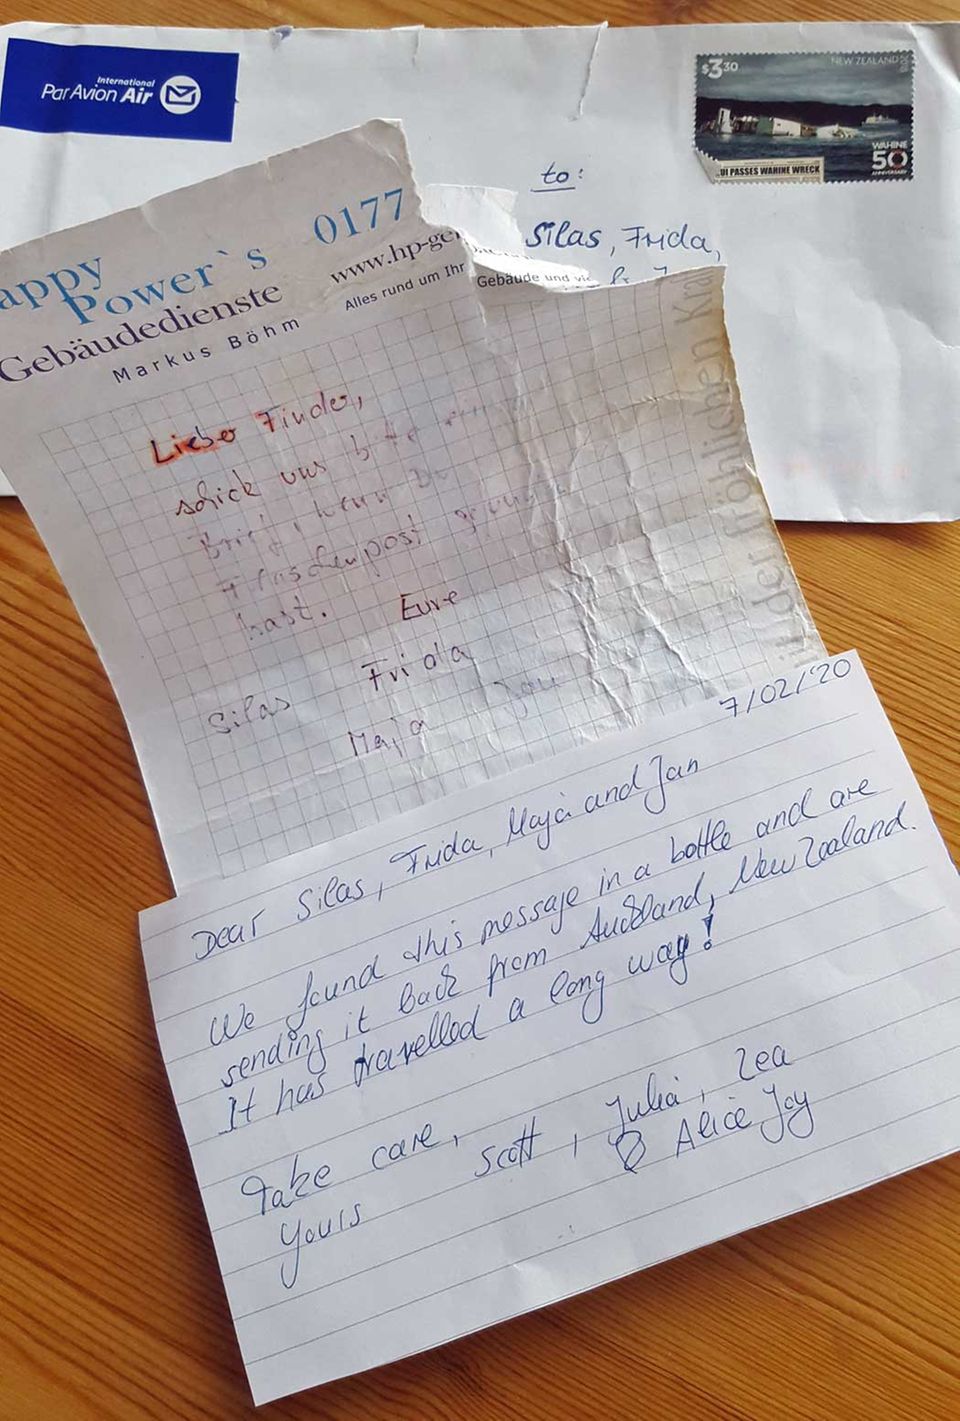 International
Par Avion Air
$3.30
NEW ZEALAND
WAHINE
50
ANNIVERSARY
UI PASSES WAHINE WRECK
to:
Silas, Frida,
appy
Power`s 0177
Gebäudedienste www.hp-ge
Markus Böhm Alles rund um Ihr Gebäude und
Lieber Finder,
schick uns bitte
Brief, wenn Du
Flaschenpost
hast. Eure
Silas Frida
Maja Jan
der fröhlichen
7/02/'20
Dear Silas, Frida, Maja and Jan
We found this message in a bottle and are
sending it back from Auckland, New Zealand.
It has travelled a long way!
Take care,
Yours Scott, Julia, Zea
& Alice Joy